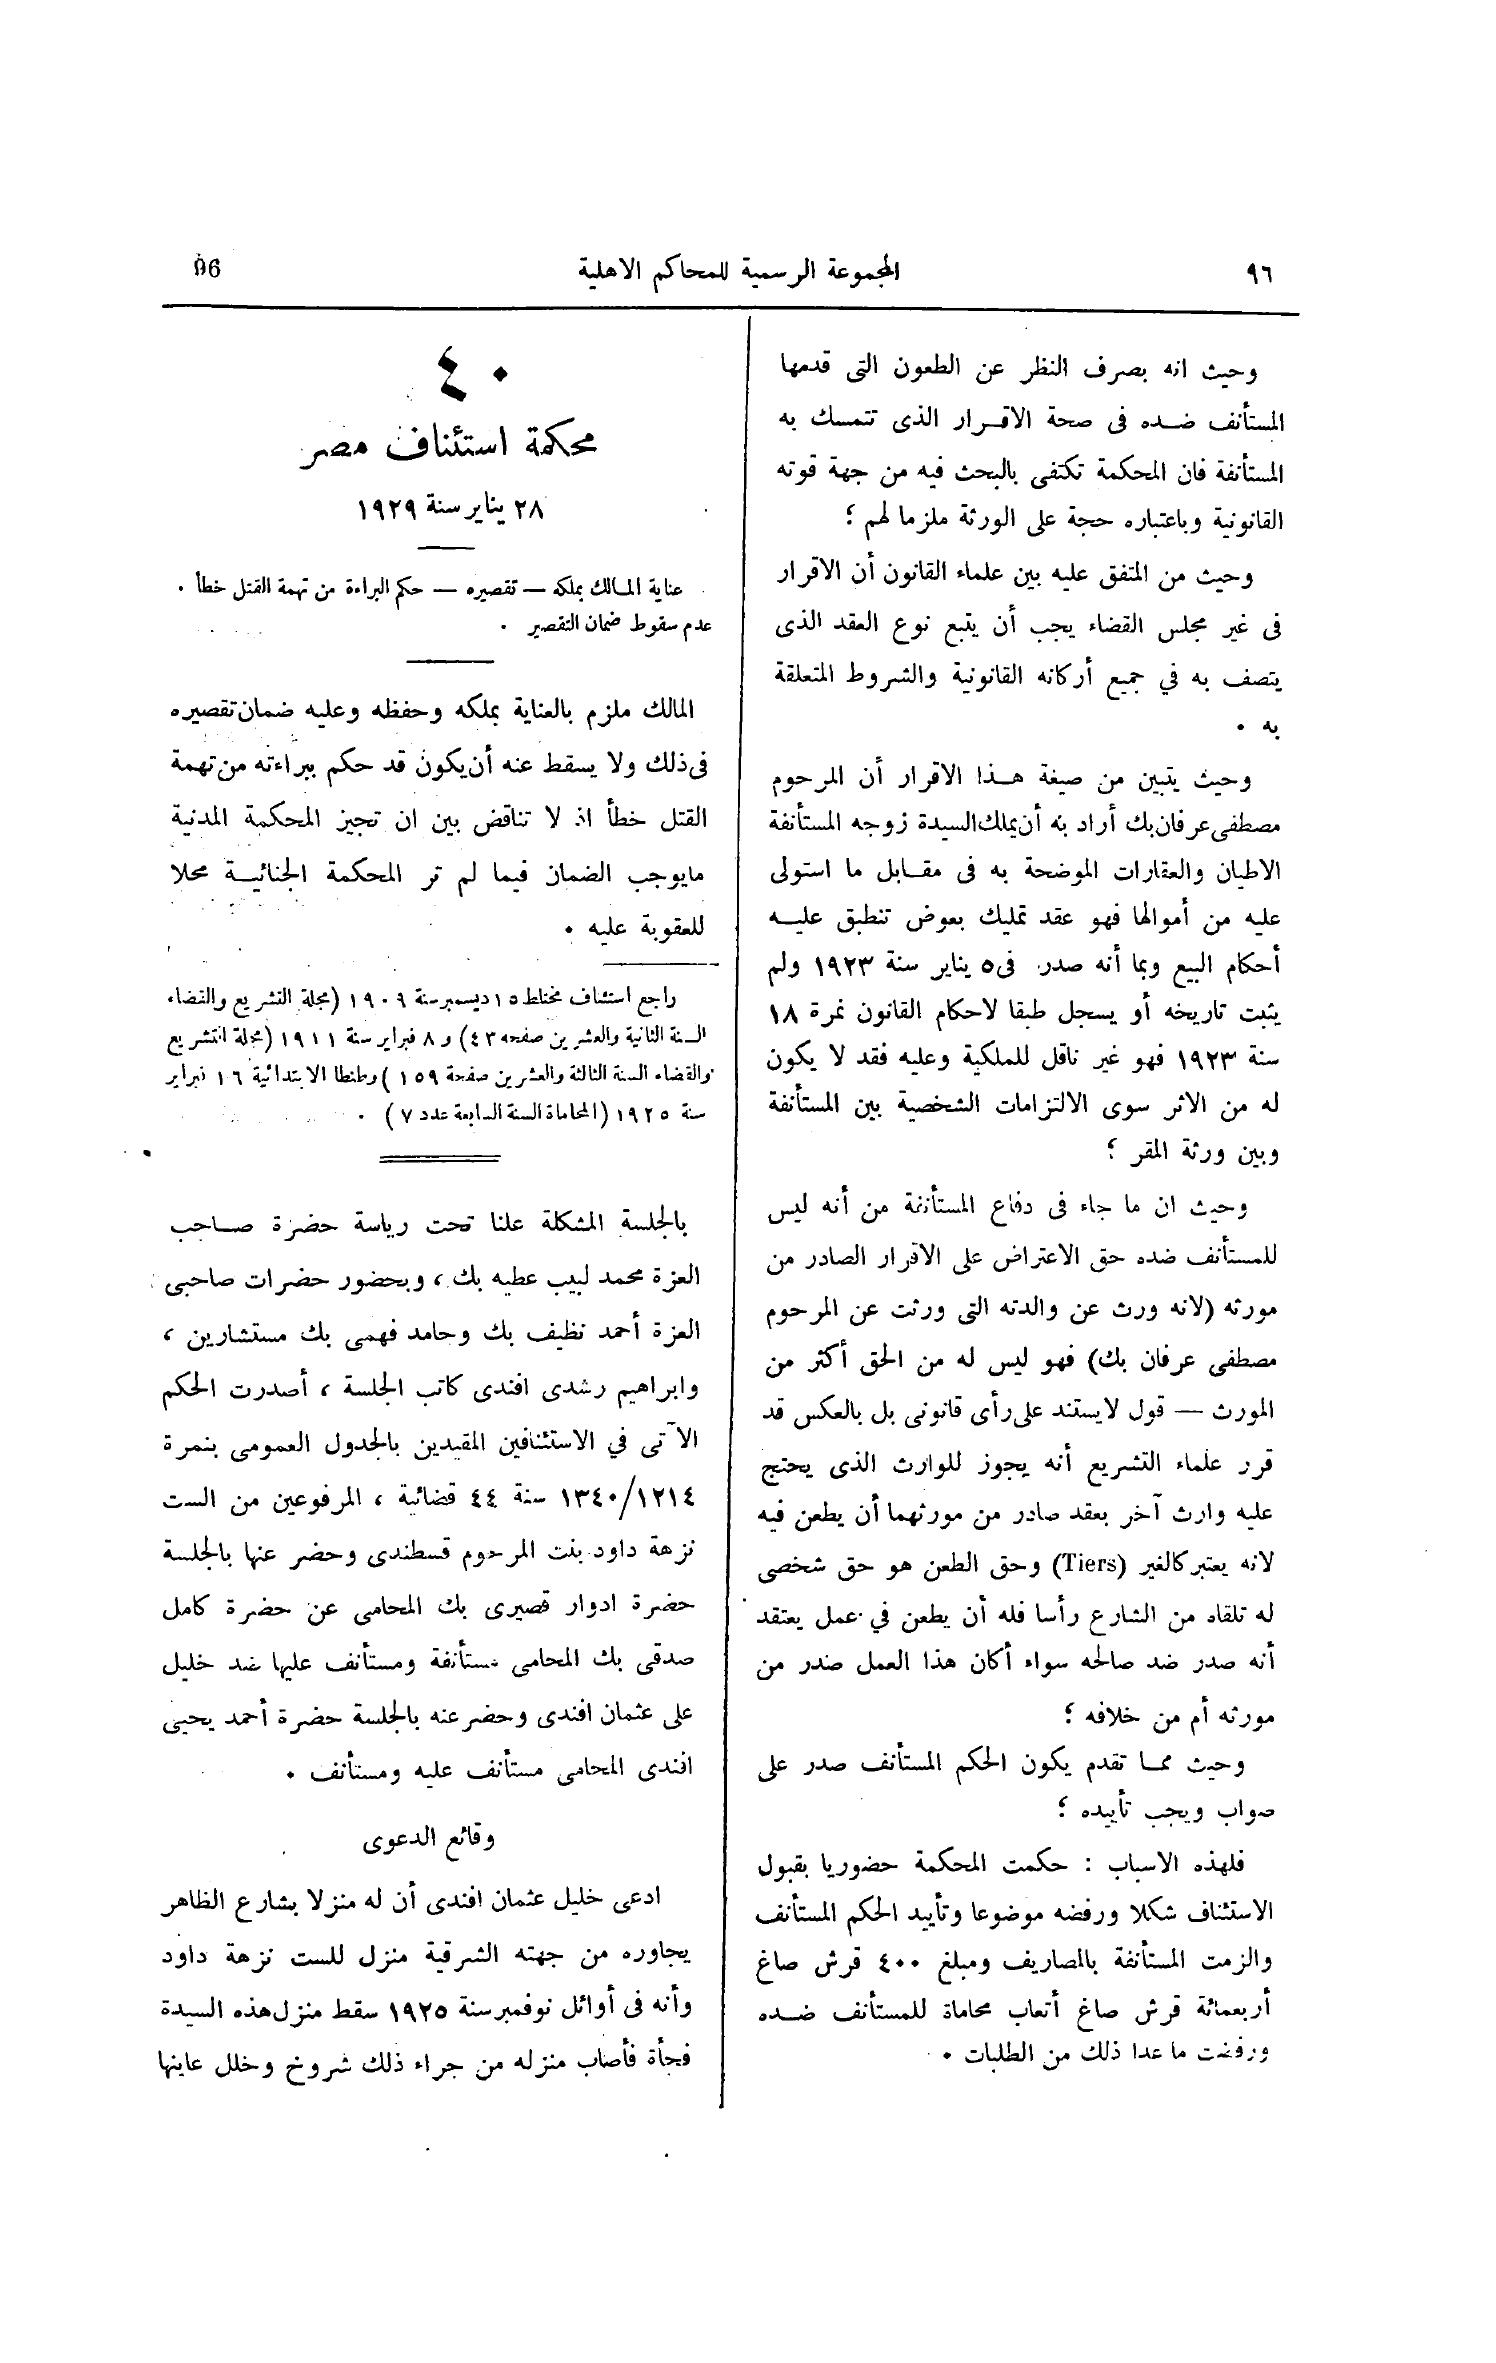 ٩٦
المجموعة الرسمية للمحاكم الاهلية
96
وحيث انه بصرف النظر عن الطعون التى قدمها
المستأنف ضده فى صحة الاقرار الذى تتمسك به
المستأنفة فان المحكمة تكتفى بالبحث فيه من جهة قوته
القانونية وباعتباره حجة على الورثة ملزما لهم ؛
وحيث من المتفق عليه بين علماء القانون أن الاقرار
فى غير مجلس القضاء يجب أن يتبع نوع العقد الذى
يتصف به في جميع أركانه القانونية والشروط المتعلقة
به .
وحيث يتبين من صيغة هذا الاقرار أن المرحوم
مصطفى عرفان بك أراد به أن يملك السيدة زوجه المستأنفة
الاطيان والعقارات الموضحة به فى مقابل ما استولى
عليه من أموالها فهو عقد تمليك بعوض تنطبق عليه
أحكام البيع وبما أنه صدر فى ٥ يناير سنة ١٩٢٣ ولم
يثبت تاريخه أو يسجل طبقا لاحكام القانون نمرة ١٨
سنة ١٩٢٣ فهو غير ناقل للملكية وعليه فقد لا يكون
له من الاثر سوى الالتزامات الشخصية بين المستأنفة
وبين ورثة المقر ؛
وحيث ان ما جاء فى دفاع المستأنفة من أنه ليس
للمستأنف ضده حق الاعتراض على الاقرار الصادر من
مورثه (لانه ورث عن والدته التى ورثت عن المرحوم
مصطفى عرفان بك) فهو ليس له من الحق أكثر من
المورث — قول لا يستند على رأى قانونى بل بالعكس قد
قرر علماء التشريع أنه يجوز للوارث الذى يحتج
عليه وارث آخر بعقد صادر من مورثهما أن يطعن فيه
لانه يعتبر كالغير (Tiers) وحق الطعن هو حق شخصى
له تلقاه من الشارع رأسا فله أن يطعن في عمل يعتقد
أنه صدر ضد صالحه سواء أكان هذا العمل صدر من
مورثه أم من خلافه ؛
وحيث مما تقدم يكون الحكم المستأنف صدر على
صواب ويجب تأييده ؛
فلهذه الاسباب : حكمت المحكمة حضوريا بقبول
الاستئناف شكلا ورفضه موضوعا وتأييد الحكم المستأنف
والزمت المستأنفة بالمصاريف ومبلغ ٤٠٠ قرش صاغ
أربعمائة قرش صاغ أتعاب محاماة للمستأنف ضده
ورفضت ما عدا ذلك من الطلبات .
٤٠
محكمة استئناف مصر
٢٨ يناير سنة ١٩٢٩
عناية المالك بملكه — تقصيره — حكم البراءة من تهمة القتل خطأ .
عدم سقوط ضمان التقصير .
المالك ملزم بالعناية بملكه وحفظه وعليه ضمان تقصيره
فى ذلك ولا يسقط عنه أن يكون قد حكم ببراءته من تهمة
القتل خطأ اذ لا تناقض بين ان تجيز المحكمة المدنية
مايوجب الضمان فيما لم تر المحكمة الجنائية محلا
للعقوبة عليه .
راجع استئناف مختلط ١٥ ديسمبر سنة ١٩٠٩ (مجلة التشريع والقضاء
السنة الثانية والعشرين صفحه ٤٣) و ٨ فبراير سنة ١٩١١ (مجلة التشريع
والقضاء السنة الثالثة والعشرين صفحة ١٥٩) وطنطا الابتدائية ١٦ فبراير
سنة ١٩٢٥ (المحاماة السنة السابعة عدد ٧) .
بالجلسة المشكلة علنا تحت رياسة حضرة صاحب
العزة محمد لبيب عطيه بك ، وبحضور حضرات صاحبى
العزة أحمد نظيف بك وحامد فهمى بك مستشارين ،
وابراهيم رشدى افندى كاتب الجلسة ، أصدرت الحكم
الآتى في الاستئنافين المقيدين بالجدول العمومى بنمرة
١٣٤٠/١٢١٤ سنة ٤٤ قضائية ، المرفوعين من الست
نزهة داود بنت المرحوم قسطندى وحضر عنها بالجلسة
حضرة ادوار قصيرى بك المحامى عن حضرة كامل
صدقى بك المحامى مستأنفة ومستأنف عليها ضد خليل
على عثمان افندى وحضر عنه بالجلسة حضرة أحمد يحيى
افندى المحامى مستأنف عليه ومستأنف .
وقائع الدعوى
ادعى خليل عثمان افندى أن له منزلا بشارع الظاهر
يجاوره من جهته الشرقية منزل للست نزهة داود
وأنه فى أوائل نوفمبر سنة ١٩٢٥ سقط منزل هذه السيدة
فجأة فأصاب منزله من جراء ذلك شروخ وخلل عاينها